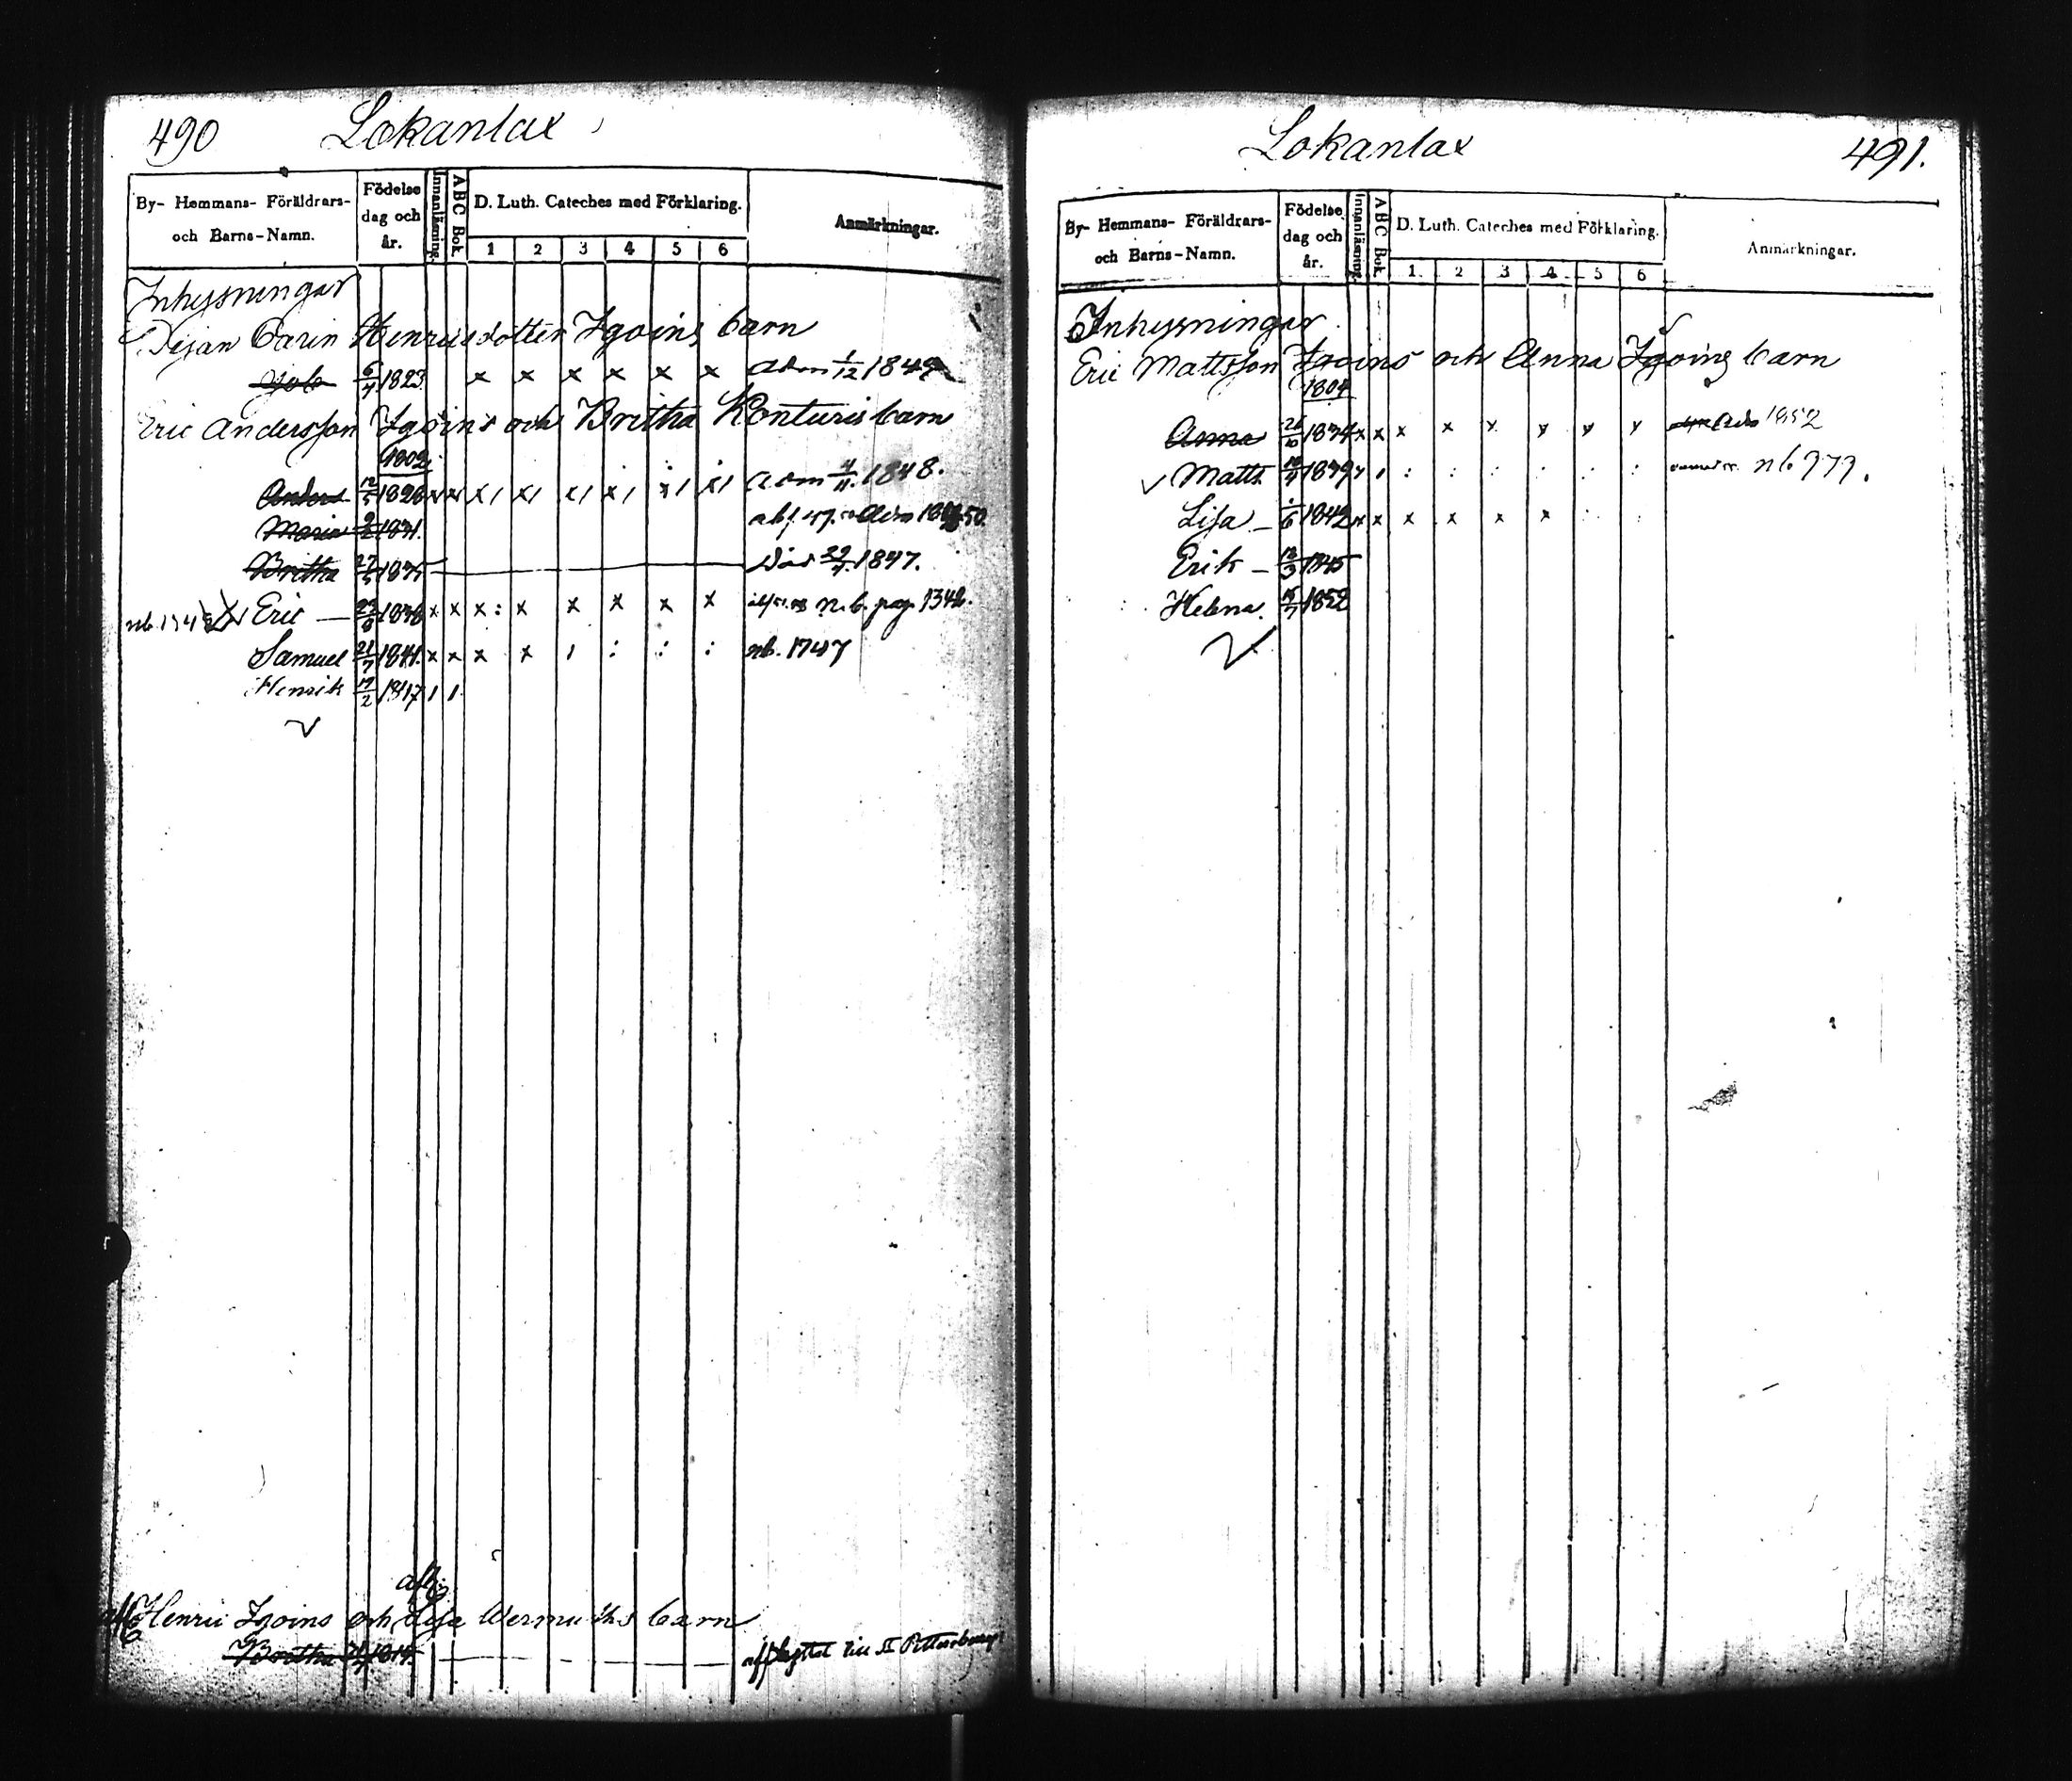 490 Lokanlax
By- Hemmans- Föräldrars- och Barns-Namn.
Födelse dag och år.
Innanläsning.
ABC Bok.
D. Luth. Cateches med Förklaring.
1 2 3 4 5 6
Anmärkningar.
Inhysningar
Pigan Carin Henricsdotter Igoins barn
Job 6/4 1823 x x x x x x adm 1/12 1849
Eric Andersson Igoins och Britha Konturis barn
1802
Anders 12/5 1828 x x x/ x/ x/ x/ x/ x/ adm 4/11 1848.
Maria 9/2 1831.
Britha 27/5 1835 Död 29/4 1847.
Eric — 23/6 1838 x x x: x x x x x n.b. pag. 1342.
Samuel 21/7 1841. x x x x ı : : : nb. 1747
Henrik 17/2 1847 / /
Henric Igoins och Lisa Wermuths barn
Britha afflyttat till St Pettersburg
Lokanlax 491.
By- Hemmans- Föräldrars- och Barns-Namn.
Födelse dag och år.
Innanläsning.
ABC Bok.
D. Luth. Cateches med Förklaring.
1. 2 3 4 5 6
Anmärkningar.
Inhysningar
Eric Mattsson Igoins och Anna Igoins barn
1804
Anna 26/10 1834 x x x x x x x x 1852
Matts 1839 nb 979.
Lisa — 1842 x x x x x x
Erik — 12/3 1845
Helena. 15/7 1852